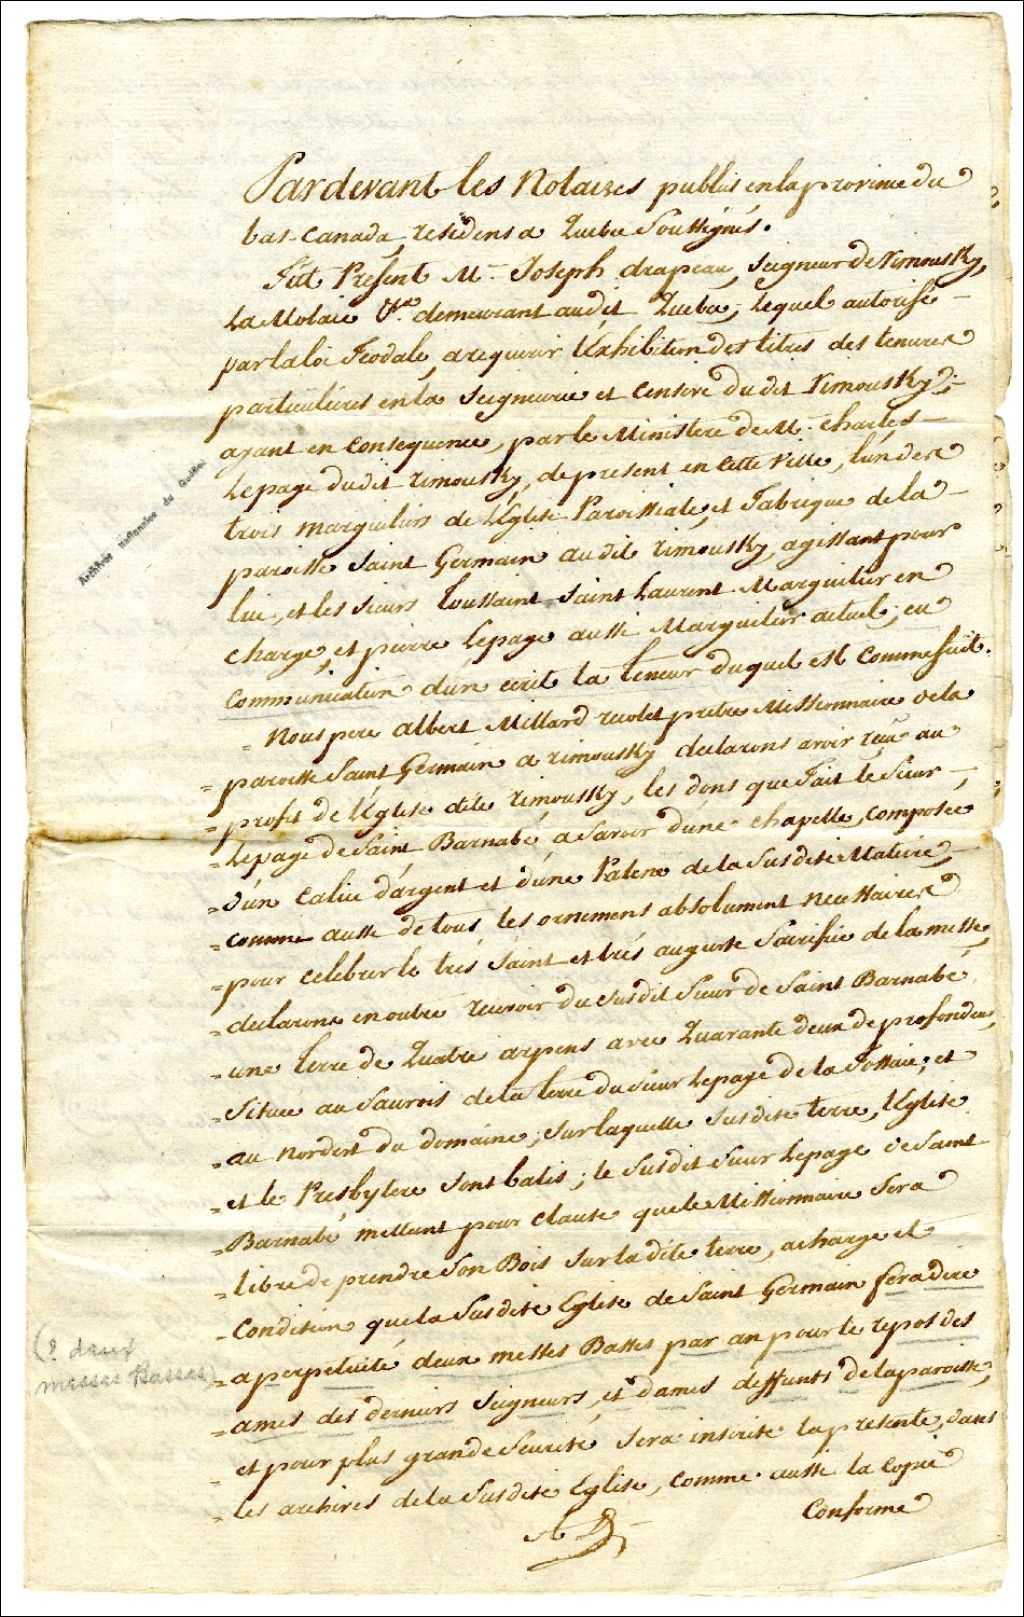 Pardevant les Notaires publics en la province du
bas-Canada, residens a Quebec Soussignés.
Fut Present Mr. Joseph drapeau, Seigneur de rimousky,
La Molaie &ca. demeurant audit Quebec, lequel autorisé
par la loi Feodale, a requerir l'exhibition des titres des tenures
particulieres en la Seigneurie et Censive du dit rimousky;
ayant en consequence, par le Ministere de Mr. charles
Lepage dudit rimousky, de present en cette ville, l'un des
trois marguiliers de l'Eglise Paroissiale, et Fabrique de la
paroisse Saint Germain audit rimousky, agissant pour
lui, et les sieurs toussaint Saint Laurent Marguilier en
charge, et pierre Lepage aussi Marguilier actuel; eu
communication d'un écrit la teneur duquel est comme suit.
= Nous pere albert Millard recolet prêtre Missionnaire de la
= paroisse Saint Germain a rimousky declarons avoir reçu au
= profit de l'Eglise dite rimoussky, les dons que Fait le Sieur
= Lepage de Saint Barnabé, a Savoir d'une chapelle, composée
= d'un calice d'argent et d'une Patene de la Susdite Matiere,
= comme aussi de tous les ornemens absolument necessaires
= pour celebrer le tres Saint et tres auguste Sacrifice de la messe,
= declarons en outre recevoir du susdit Sieur de Saint Barnabé
= une terre de Quatre arpens avec Quarante deux de profondeur,
= Située au Saurois de la terre du Sieur Lepage de la Fossaie; et
= au nordest du domaine; sur laquelle susdite terre, l'Eglise
= et le Presbytere Sont batis; le Susdit Sieur Lepage de Saint
= Barnabé mettant pour clause que le Missionnaire Sera
= libre de prendre Son Bois Sur la dite terre, a charge et
= Condition que la Susdite Eglise de Saint Germain fera dire
= a perpetuité deux messes Basses par an pour le repos des
= ames des derniers Seigneurs, et dames deffunts de la paroisse,
= et pour plus grande Seureté Sera inscrite la presente, dans
= les archives de la Susdite Eglise, comme aussi la copie
Conforme
Archives nationales du Québec
(? deux
messes Basses)